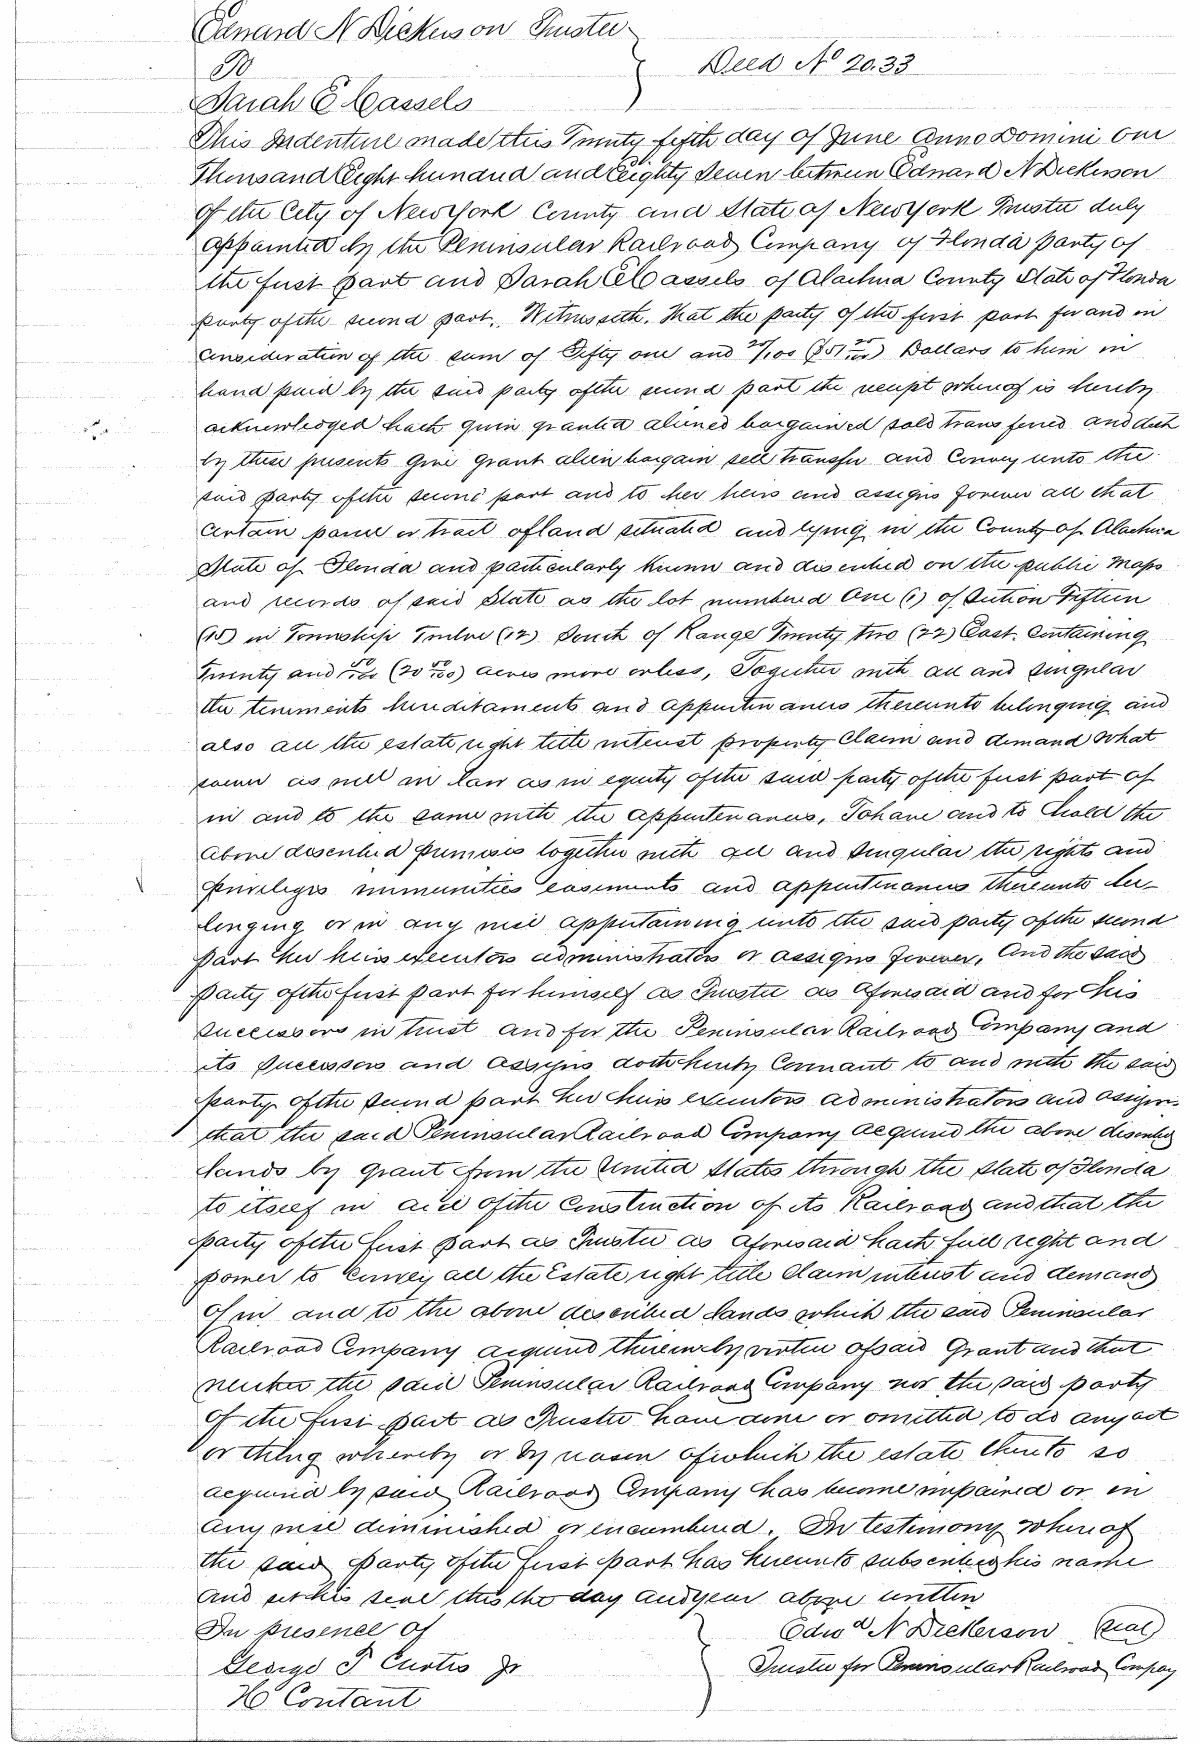 Edward N Dickerson Trustee
To
Deed No 2033
Sarah E Cassels
This Indenture made this Twenty fifth day of June Anno Domini One
Thousand Eight hundred and Eighty Seven between Edward N Dickerson
of the City of New York County and State of New York Trustee duly
appointed by the Peninsular Railroad Company of Florida party of
the first part and Sarah E Cassels of Alachua County State of Florida
party of the second part, Witnesseth, That the party of the first part for and in
consideration of the sum of Fifty one and 25/100 ($51 25/100) Dollars to him in
hand paid by the said party of the second part the receipt whereof is hereby
acknowledged hath given granted aliened bargained sold transferred and doth
by these presents give grant alien bargain sell transfer and Convey unto the
said party of the second part and to her heirs and assigns forever all that
certain parcel or tract of land situated and lying in the County of Alachua
State of Florida and particularly known and described on the public maps
and records of said State as the lot numbered One (1) of Section Fifteen
(15) in Township Twelve (12) South of Range Twenty two (22) East. Containing
Twenty and 50/100 (20 50/100) acres more or less, Together with all and singular
the tenements hereditaments and appurtenances thereunto belonging and
also all the estate right title interest property Claim and demand what
soever as well in law as in equity of the said party of the first part of
in and to the same with the appurtenances, To have and to hold the
above described premises together with all and singular the rights and
privileges immunities easements and appurtenances thereunto be-
longing or in any wise appertaining unto the said party of the second
part her heirs executors administrators or assigns forever, And the said
party of the first part for himself as Trustee as aforesaid and for his
successors in trust and for the Peninsular Railroad Company and
its successors and assigns doth hereby Covenant to and with the said
party of the second part her heirs executors administrators and assigns
that the said Peninsular Railroad Company acquired the above described
lands by grant from the United States through the State of Florida
to itself in aid of the Construction of its Railroad and that the
party of the first part as Trustee as aforesaid hath full right and
power to Convey all the Estate right title Claim interest and demand
of in and to the above described lands which the said Peninsular
Railroad Company acquired therein by virtue of said Grant and that
neither the said Peninsular Railroad Company nor the said party
of the first part as Trustee have done or omitted to do any act
or thing whereby or by reason of which the estate thereto so
acquired by said Railroad Company has become impaired or in
any wise diminished or encumbered. In testimony whereof
the said party of the first part has hereunto subscribed his name
and set his seal this the day and year above written
In presence of
Edwd N Dickerson (seal)
George T Curtis Jr
Trustee for Peninsular Railroad Compay
H Contant